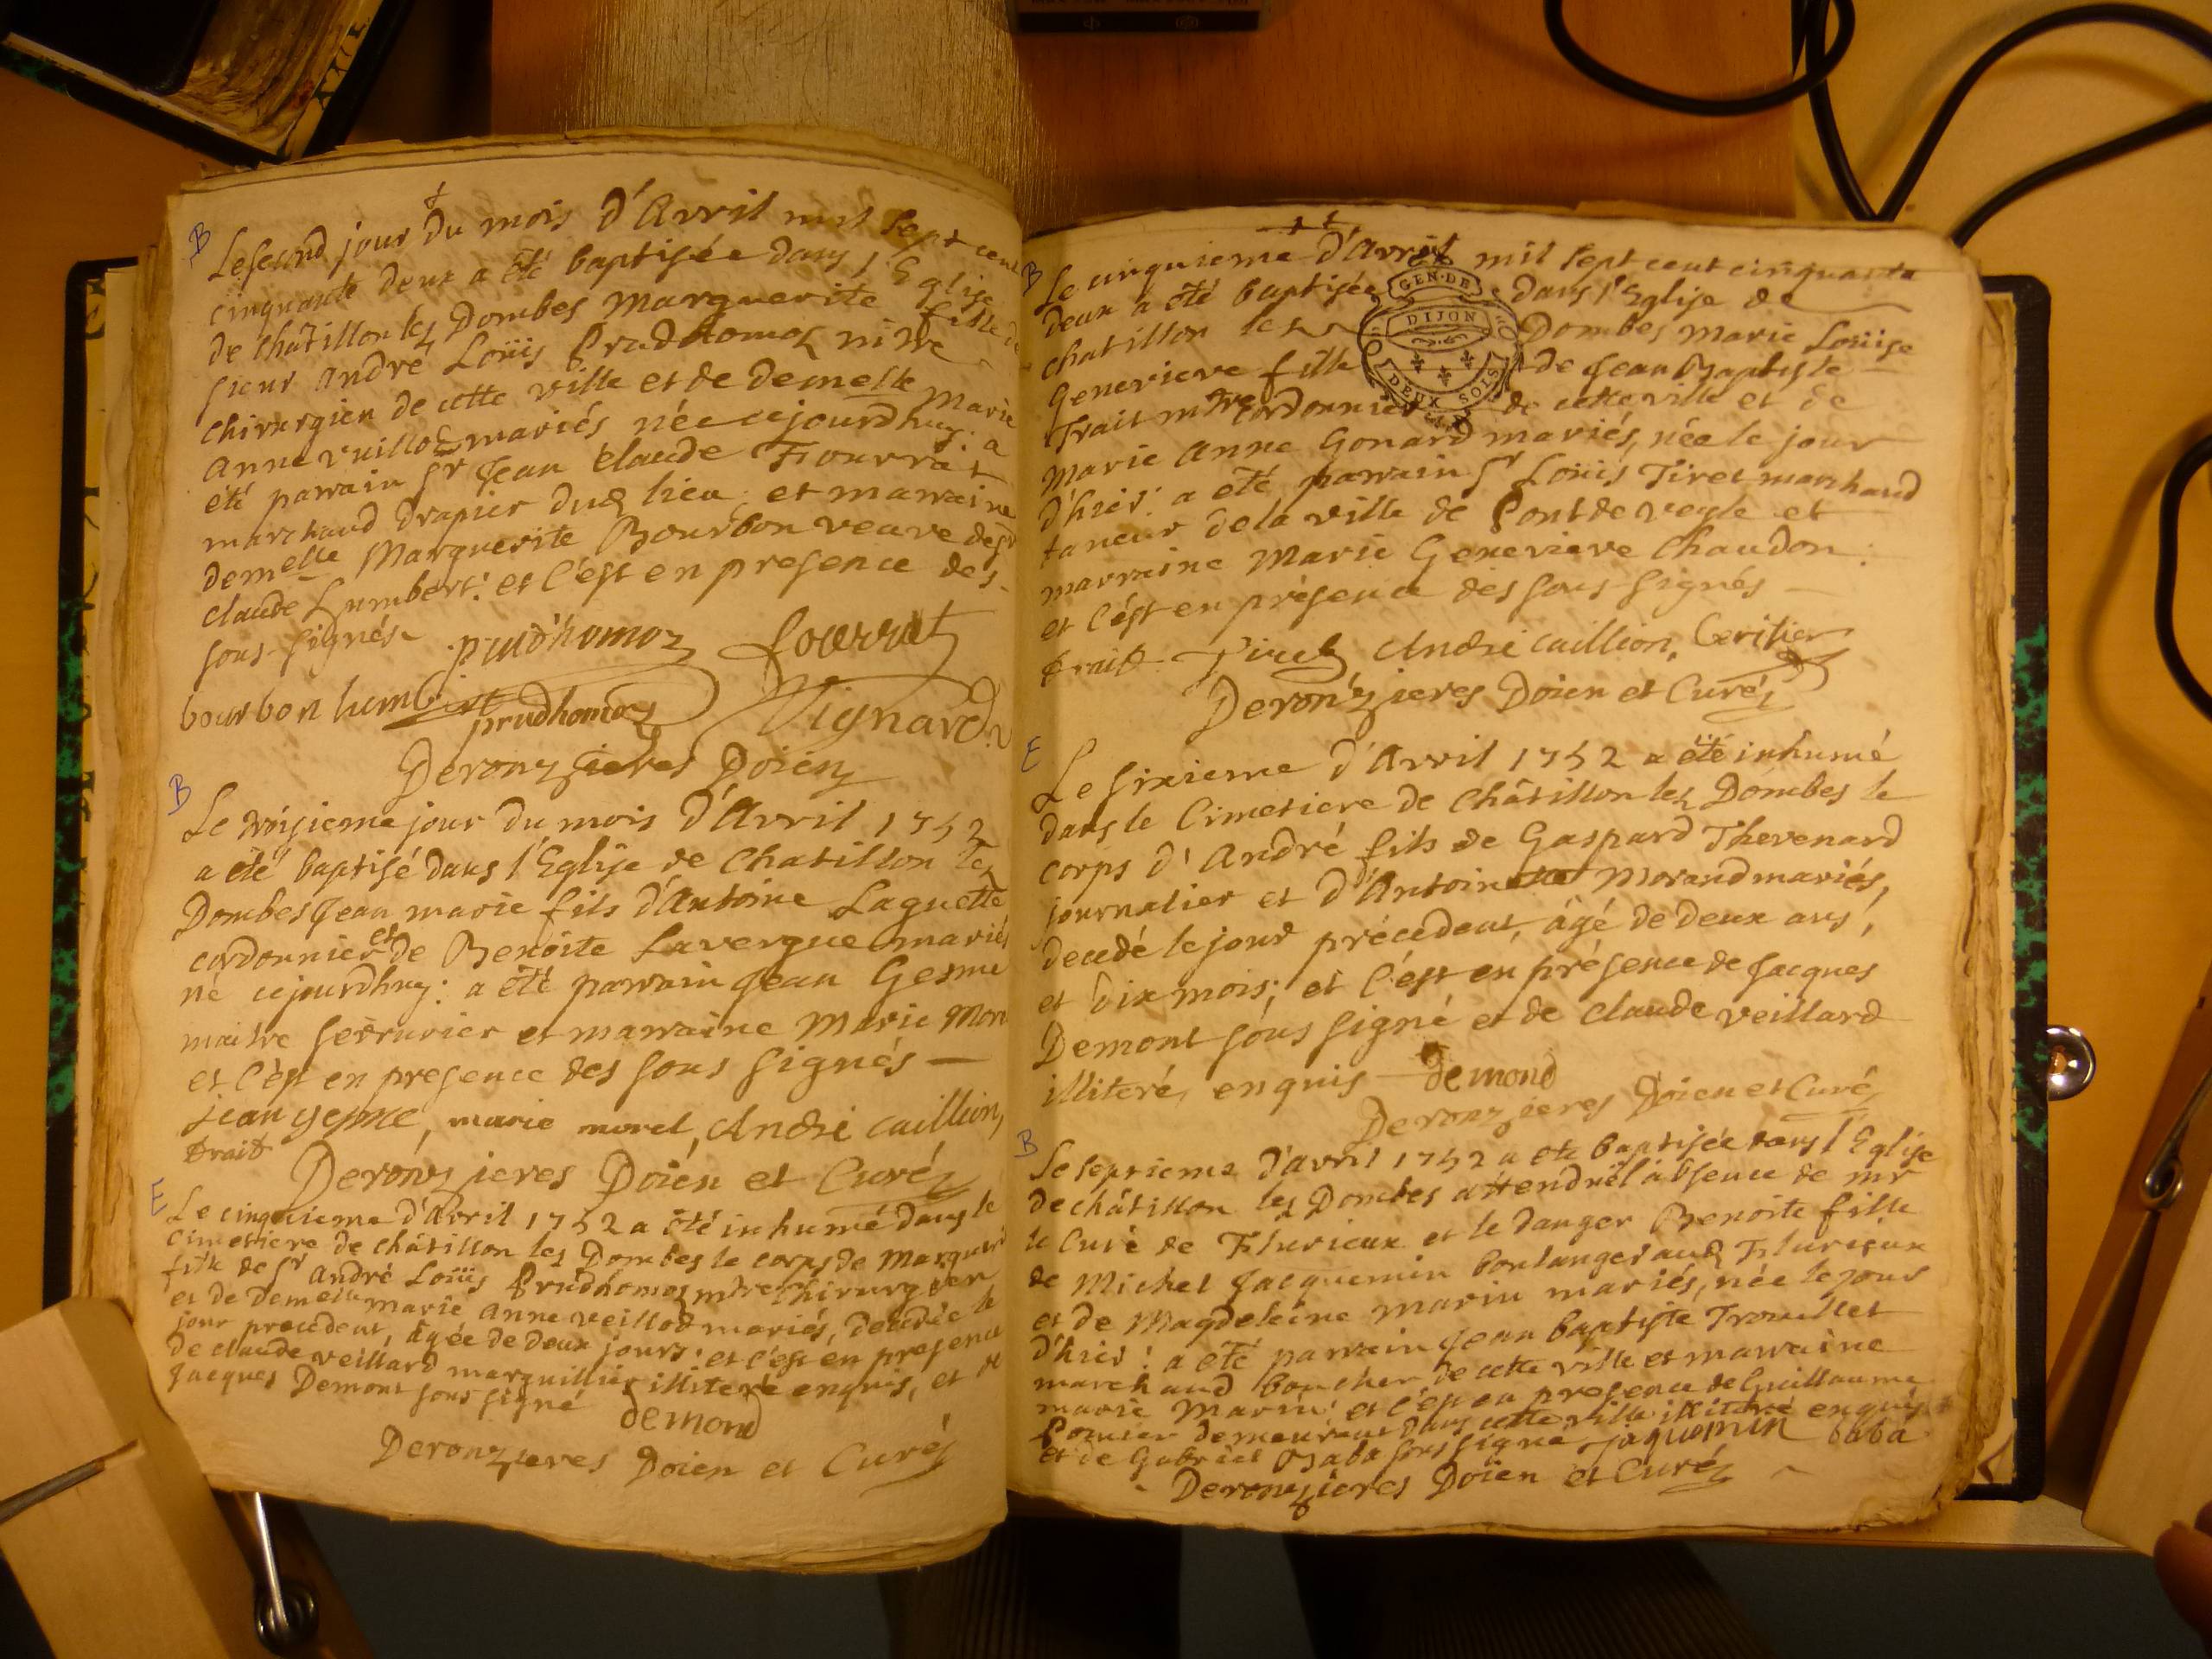 B
Le second jour du mois d'Avril mil sept cent
cinquante deux a été baptisée dans l'Eglise
de châtillon les Dombes Marguerite fille de
sieur André Loüis Prudhomoz mtre
chirurgien de cette ville et de demelle Marie
Anne vuillod mariés née cejourdhuy: a
été parrain sr Jean Claude Fiourrat
marchand drapier dud lieu; et marraine
demelle Marguerite Bourbon veuve de sr
claude Humbert: et c'est en presence des
sous-signés
prudhomoz fourrat
bourbon humbert prudhomoz Vignard
Deronzieres Doien
B
Le troisieme jour du mois d'Avril 1752
a été baptisé dans l'Eglise de Chatillon lez
Dombes Jean marie fils d'Antoine Laguette
cordonnier et de Benoite Lavergne mariés
né cejourdhuy: a été parrain Jean Gesme
maitre serrurier et marraine Marie Mor
et c'est en presence des sous signés
jean gesme, marie morel, André caillion,
trait
Deronzieres Doien et Curé
E
Le cinquieme d'Avril 1752 a été inhumé dans le
cimetiere de châtillon les Dombes le corps de Margueri
fille de sr André Loüis Prudhomoz mtre chirurgien
et de demelle marie Anne veillod mariés, decedée le
jour precedent, âgée de deux jours: et c'est en presence
de claude veillard marguillier illiteré enquis, et de
Jacques Demont sous signé demond
Deronzieres Doien et Curé
B
Le cinquieme d'Avril mil sept cent cinquante
deux a été baptisée dans l'Eglise de
chatillon les Dombes Marie Loüise
Genevieve fille de Jean Baptiste
Trait mtre cordonnier de cette ville et de
Marie Anne Gonard mariés, née le jour
d'hier: a été parrain sr Loüis Tiret marchand
taneur de la ville de Pont de veyle et
marraine Marie Genevieve Chaudon:
et c'est en présence des sous-signés
trait Tiret André caillion, Ceritier
Deronzieres Doien et Curé
GEN. DE
DIJON
DEUX SOLS
E
Le sixieme d'Avril 1752 a été inhumé
dans le Cimetiere de Châtillon les Dombes le
corps d'André fils de Gaspard Thevenard
journalier et d'Antoinette Morand mariés,
decedé le jour précédent, âgé de deux ans,
et dix mois; et c'est en présence de Jacques
Demont sous signé et de claude veillard
illiteré, enquis demond
Deronzieres Doien et Curé
B
Le septieme d'avril 1752 a été baptisée dans l'Eglise
de châtillon les Dombes attendu l'absence de mr
le Curé de Flurieux et le danger Benoite fille
de Michel Jacquemin boulanger aud Flurieux
et de Magdeleine Marin mariés, née le jour
d'hier: a été parrain Jean baptiste Trouillet
marchand boucher de cette ville et marraine
marie Marin: et c'est en presence de Guillaume
demeurant dans cette ville illiteré enquis
et de Gabriel Baba sous signé jaquemin baba
Deronzieres Doien et Curé